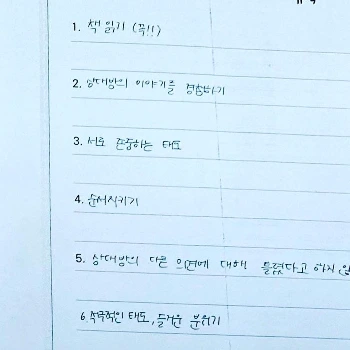 1. 책 읽기 (꼭!!)
2. 상대방의 이야기를 경청하기
3. 서로 존중하는 태도
4. 순서지키기
5. 상대방의 다른 의견에 대해 틀렸다고 하지 않
6. 적극적인 태도, 즐거운 분위기